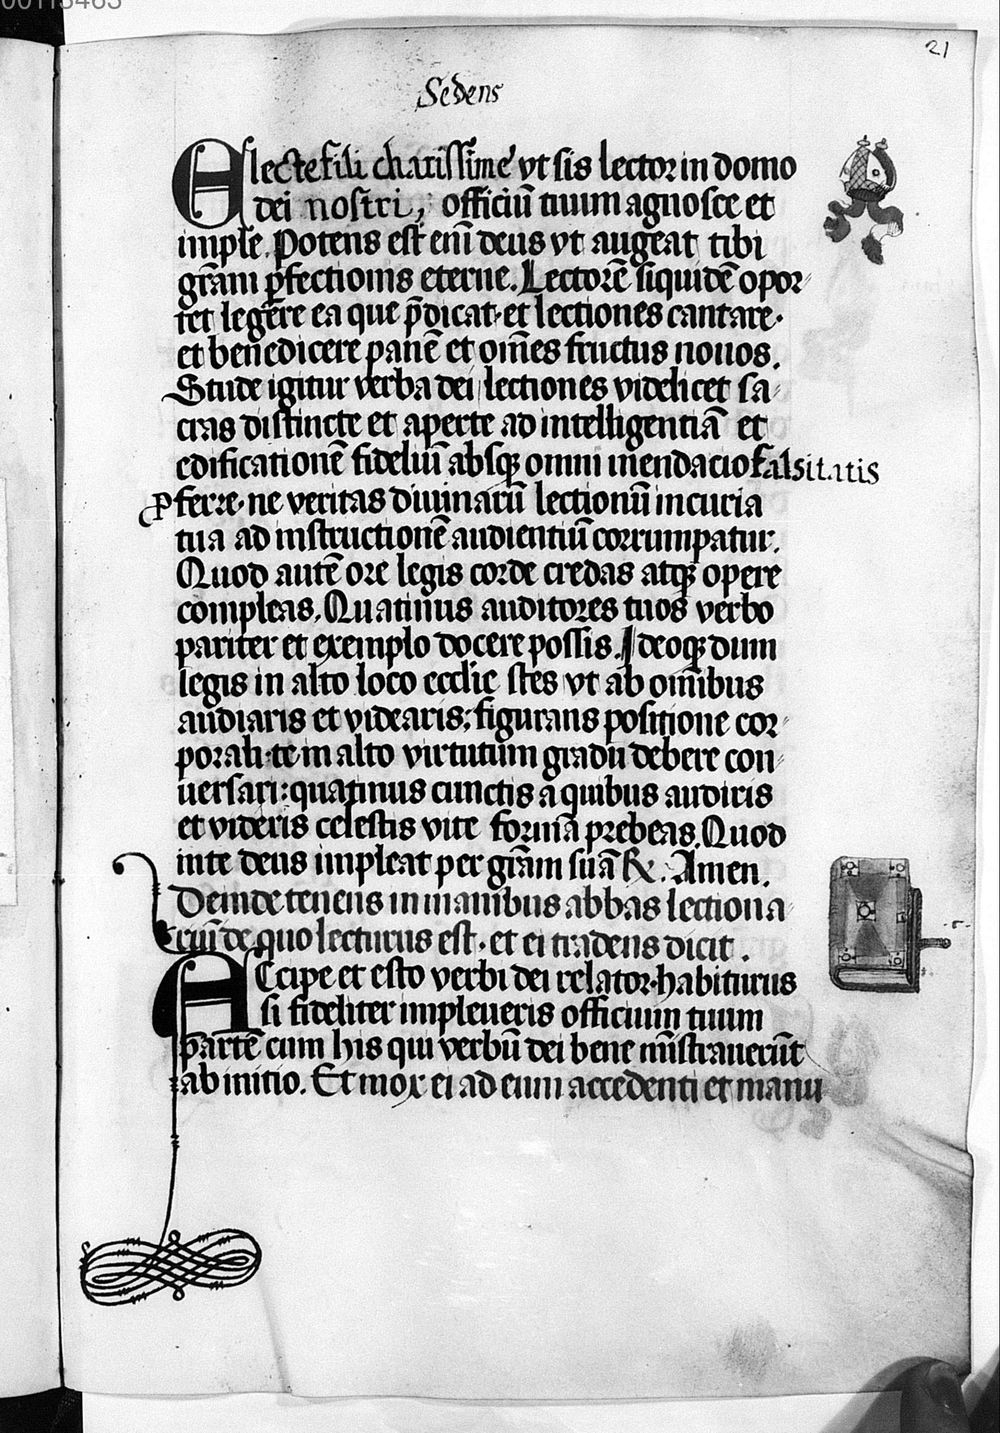 00113463
21
Sedens
Electe fili charissime vt sis lector in domo
dei nostri, officiū tuum agnosce et
imple. Potens est enī deus vt augeat tibi
gr̄am ꝑfectionis eterne. Lectorē siquidē opor
tet legere ea que p̄dicat et lectiones cantare.
et benedicere panē et om̄es fructus nouos.
Stude igitur verba dei lectiones videlicet sa
cras distincte et aperte ad intelligentiā et
edificationē fideliū absqꝫ omni mendacio falsitatis
ꝓferre. ne veritas diuinarū lectionū incuria
tua ad instructionē audientiū corrumpatur.
Quod autē ore legis corde credas atqꝫ opere
compleas. Quatinus auditores tuos verbo
pariter et exemplo docere possis. Ideoqꝫ dum
legis in alto loco ecclīe stes vt ab om̄ibus
audiaris et videaris: figurans positione cor
porali te in alto virtutum gradu debere con
uersari: quatinus cunctis a quibus audiris
et videris celestis vite formā prebeas. Quod
in te deus impleat per gr̄am suā ℟. Amen.
Deinde tenens in manibus abbas lectiona
riū de quo lecturus est. et ei tradens dicit.
Accipe et esto verbi dei relator. habiturus
si fideliter impleueris officium tuum
partē cum his qui verbū dei bene mīstrauerūt
ab initio. Et mox ei ad eum accedenti et manu